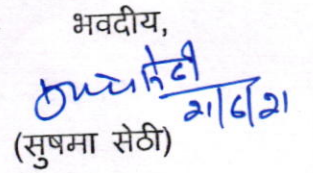 भवदीय,
21/6/21
(सुषमा सेठी)